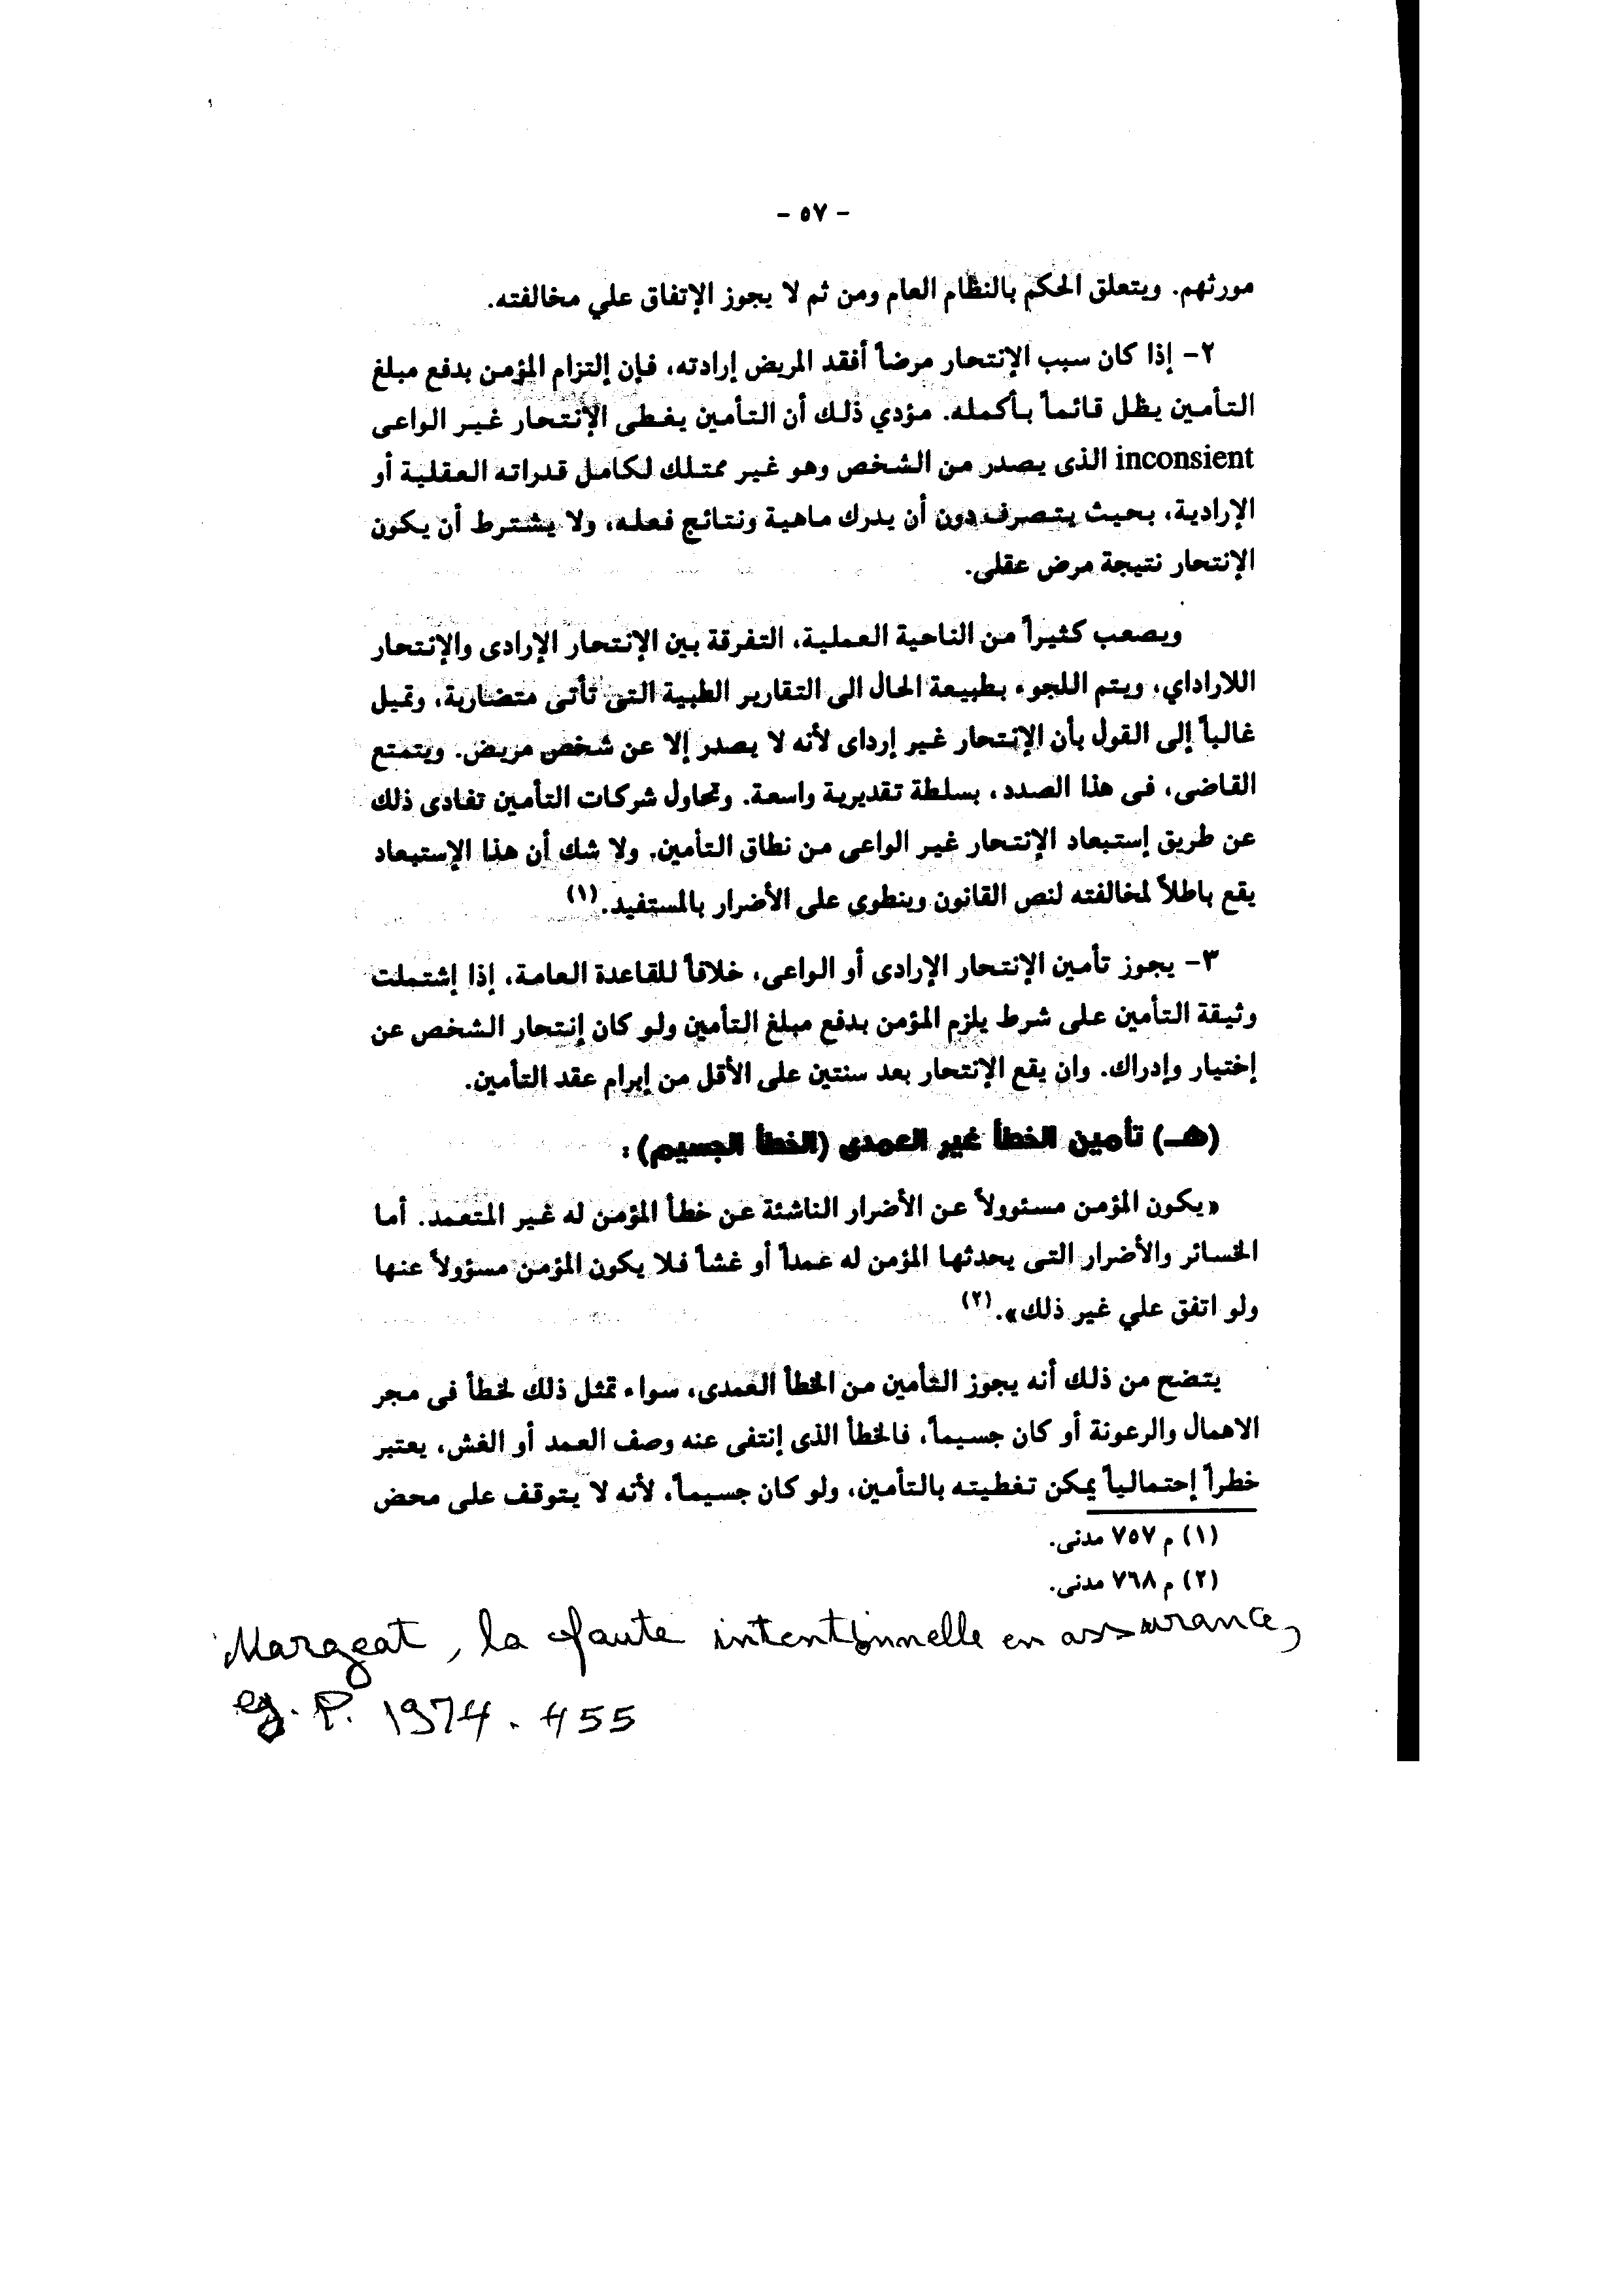 - ٥٧ -
مورثهم. ويتعلق الحكم بالنظام العام ومن ثم لا يجوز الإتفاق علي مخالفته.
٢- إذا كان سبب الإنتحار مرضاً أفقد المريض إرادته، فإن إلتزام المؤمن بدفع مبلغ
التأمين يظل قائماً بأكمله. مؤدي ذلك أن التأمين يغطى الإنتحار غير الواعى
inconsient الذى يصدر من الشخص وهو غير ممتلك لكامل قدراته العقلية أو
الإرادية، بحيث يتصرف دون أن يدرك ماهية ونتائج فعله، ولا يشترط أن يكون
الإنتحار نتيجة مرض عقلى.
ويصعب كثيراً من الناحية العملية، التفرقة بين الإنتحار الإرادى والإنتحار
اللاراداي، ويتم اللجوء بطبيعة الحال الى التقارير الطبية التى تأتى متضاربة، وتميل
غالباً إلى القول بأن الإنتحار غير إرداى لأنه لا يصدر إلا عن شخص مريض. ويتمتع
القاضى، فى هذا الصدد، بسلطة تقديرية واسعة. وتحاول شركات التأمين تفادى ذلك
عن طريق إستبعاد الإنتحار غير الواعى من نطاق التأمين. ولا شك أن هذا الإستبعاد
يقع باطلاً لمخالفته لنص القانون وينطوى على الأضرار بالمستفيد.(١)
٣- يجوز تأمين الإنتحار الإرادى أو الواعى، خلافاً للقاعدة العامة، إذا إشتملت
وثيقة التأمين على شرط يلزم المؤمن بدفع مبلغ التأمين ولو كان إنتحار الشخص عن
إختيار وإدراك. وان يقع الإنتحار بعد سنتين على الأقل من إبرام عقد التأمين.
(هـ) تأمين الخطأ غير العمدى (الخطأ الجسيم) :
«يكون المؤمن مسئوولاً عن الأضرار الناشئة عن خطأ المؤمن له غير المتعمد. أما
الخسائر والأضرار التى يحدثها المؤمن له عمداً أو غشاً فلا يكون المؤمن مسؤولاً عنها
ولو اتفق علي غير ذلك».(٢)
يتضح من ذلك أنه يجوز التأمين من الخطأ العمدى، سواء تمثل ذلك لخطأ فى مجر
الاهمال والرعونة أو كان جسيماً، فالخطأ الذى إنتفى عنه وصف العمد أو الغش، يعتبر
خطراً إحتمالياً يمكن تغطيته بالتأمين، ولو كان جسيماً، لأنه لا يتوقف على محض
(١) م ٧٥٧ مدنى.
(٢) م ٧٦٨ مدنى.
Margeat, la faute intentionnelle en assurance,
P. 1974. 455